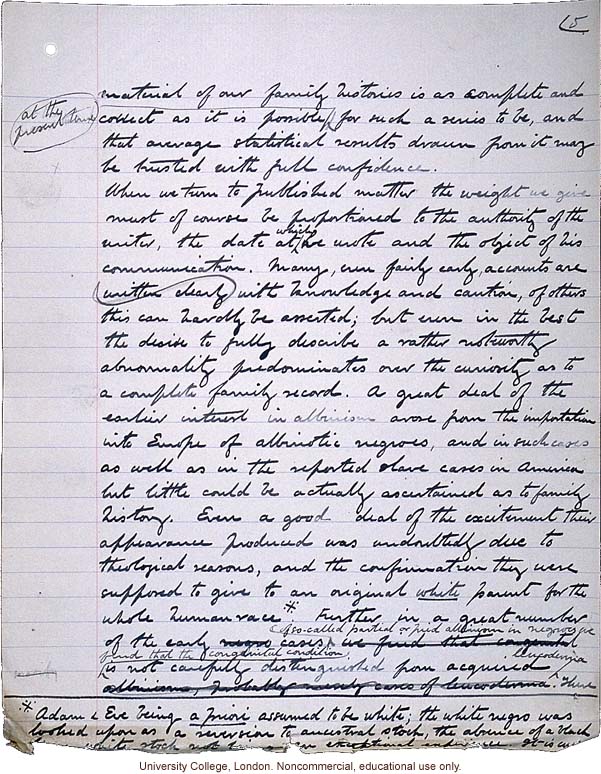 5
material of our family histories is as complete and
at the present time
correct as it is possible for such a series to be, and
that average statistical results drawn from it may
be trusted with full confidence.
When we turn to published matter the weight we give
must of course be proportioned to the authority of the
writer, the date at which he wrote and the object of his
communication. Many, even fairly early, accounts are
written clearly with knowledge and caution, of others
this can hardly be asserted; but even in the best
the desire to fully describe a rather noteworthy
abnormality predominates over the curiosity as to
a complete family record. A great deal of the
earlier interest in albinism arose from the importation
into Europe of albinotic negroes, and in such cases
as well as in the reported slave cases in America
but little could be actually ascertained as to family
history. Even a good deal of the excitement their
appearance produced was undoubtedly due to
theological reasons, and the confirmation they were
supposed to give to an original white parent for the
whole human race * Further in a great number
of so-called partial or pied albinism in negroes we
of the early negro cases we find that congenital
find that the congenital condition, leucoderma
is not carefully distinguished from acquired
albinisms, probably merely cases of leucoderma. There
* Adam & Eve being a priori assumed to be white; the white negro was
looked upon as a reversion to ancestral stock, the absence of a black
white stock not
University College, London. Noncommercial, educational use only.